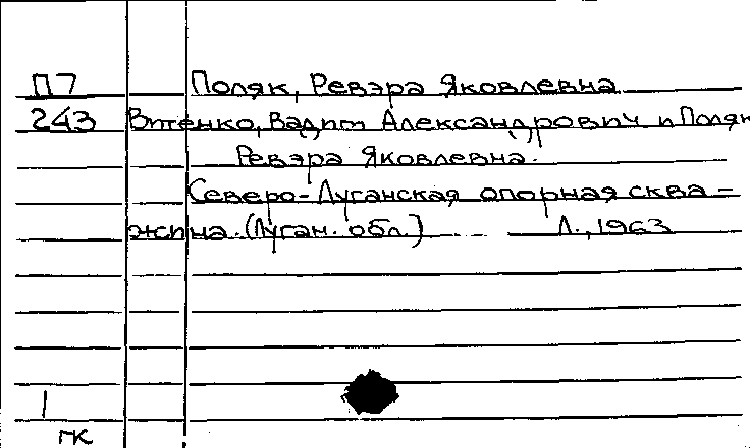 П7 Поляк, Ревэра Яковлевна
243 Витенко, Вадим Александрович и Поляк
Ревэра Яковлевна.
Северо-Луганская опорная сква-
жина. (Луган. обл.) Л., 1963
1
ГК